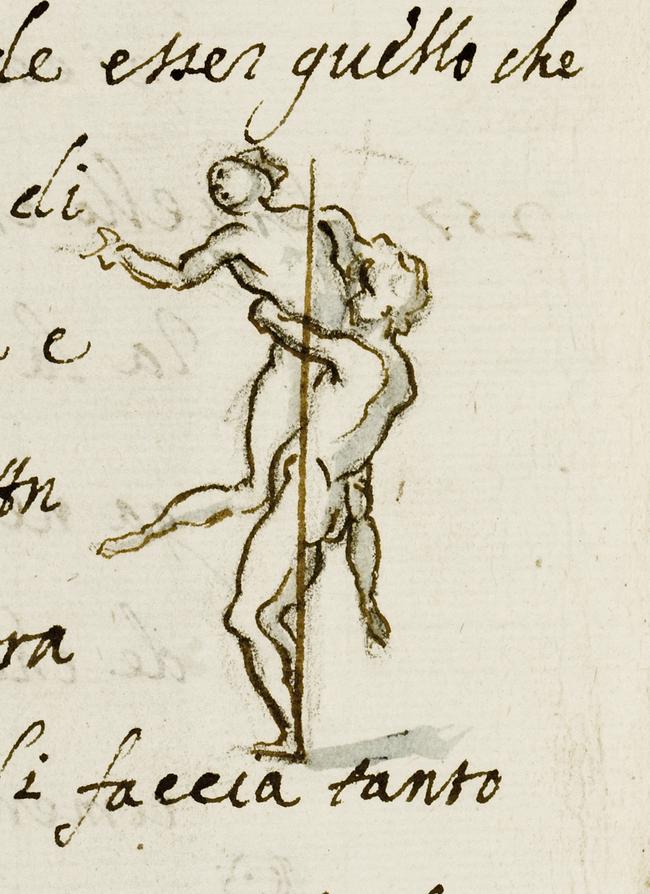 de esser quello che
di
e
ra
si faccia tanto